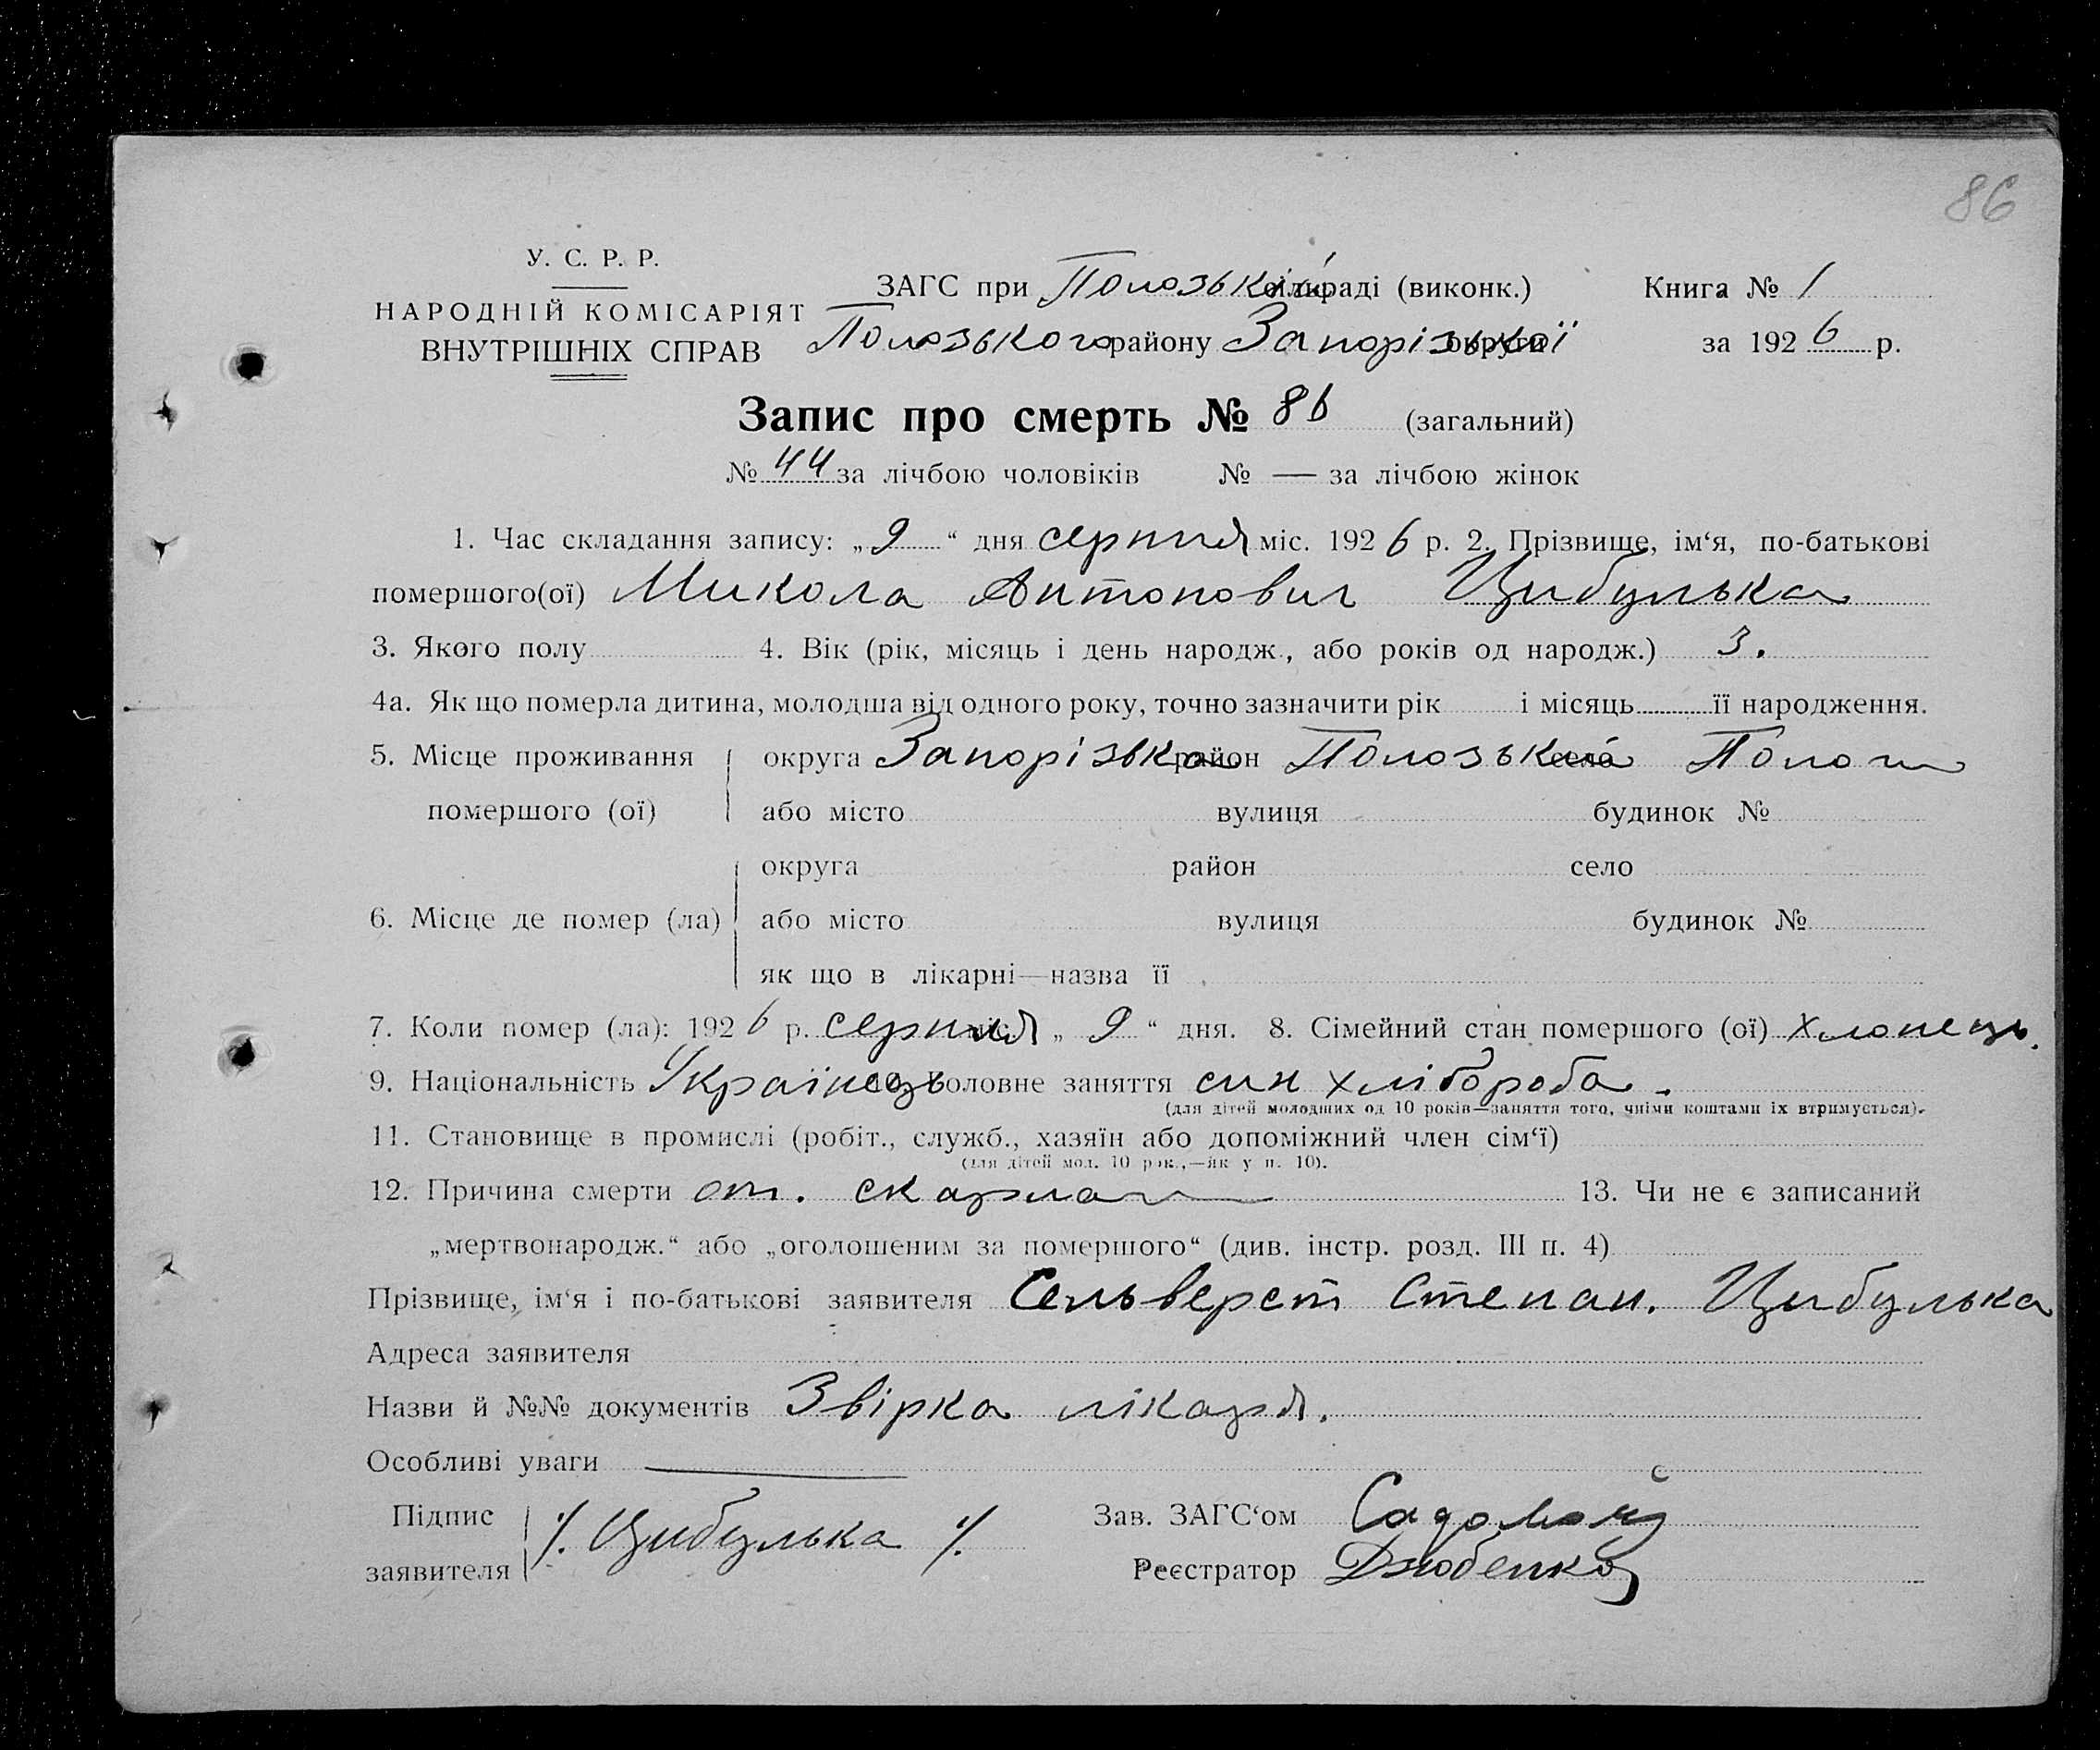 86
У. С. Р. Р.
НАРОДНІЙ КОМІСАРІЯТ
ВНУТРІШНІХ СПРАВ
ЗАГС при Полозькій сільраді (виконк.) Книга № 1
Полозького району Запорізької округи за 1926 р.
Запис про смерть № 86 (загальний)
№ 44 за лічбою чоловіків № — за лічбою жінок
1. Час складання запису: „9“ дня серпня міс. 1926 р. 2. Прізвище, ім‘я, по-батькові
помершого(ої) Микола Антонович Цибулька
3. Якого полу 4. Вік (рік, місяць і день народж., або років од народж.) 3.
4а. Як що померла дитина, молодша від одного року, точно зазначити рік і місяць її народження.
5. Місце проживання округа Запорізька район Полозький село Пологи
помершого (ої) або місто вулиця будинок №
округа район село
6. Місце де помер (ла) або місто вулиця будинок №
як що в лікарні—назва її
7. Коли помер (ла): 1926 р. серпня міс. „9“ дня. 8. Сімейний стан помершого (ої) хлопець.
9. Національність Українець 10. Головне заняття син хлібороба.
(для дітей молодших од 10 років—заняття того, чиїми коштами їх втримується).
11. Становище в промислі (робіт., служб., хазяїн або допоміжний член сім‘ї)
(для дітей мол. 10 рок.,—як у п. 10).
12. Причина смерти от. скарлат 13. Чи не є записаний
„мертвонародж.“ або „оголошеним за помершого“ (див. інстр. розд. III п. 4)
Прізвище, ім‘я і по-батькові заявителя Сельверст Степан. Цибулька
Адреса заявителя
Назви й №№ документів Звірка лікаря.
Особливі уваги
Підпис Зав. ЗАГС‘ом
заявителя /. Цибулька /. Реєстратор Дзюбенко